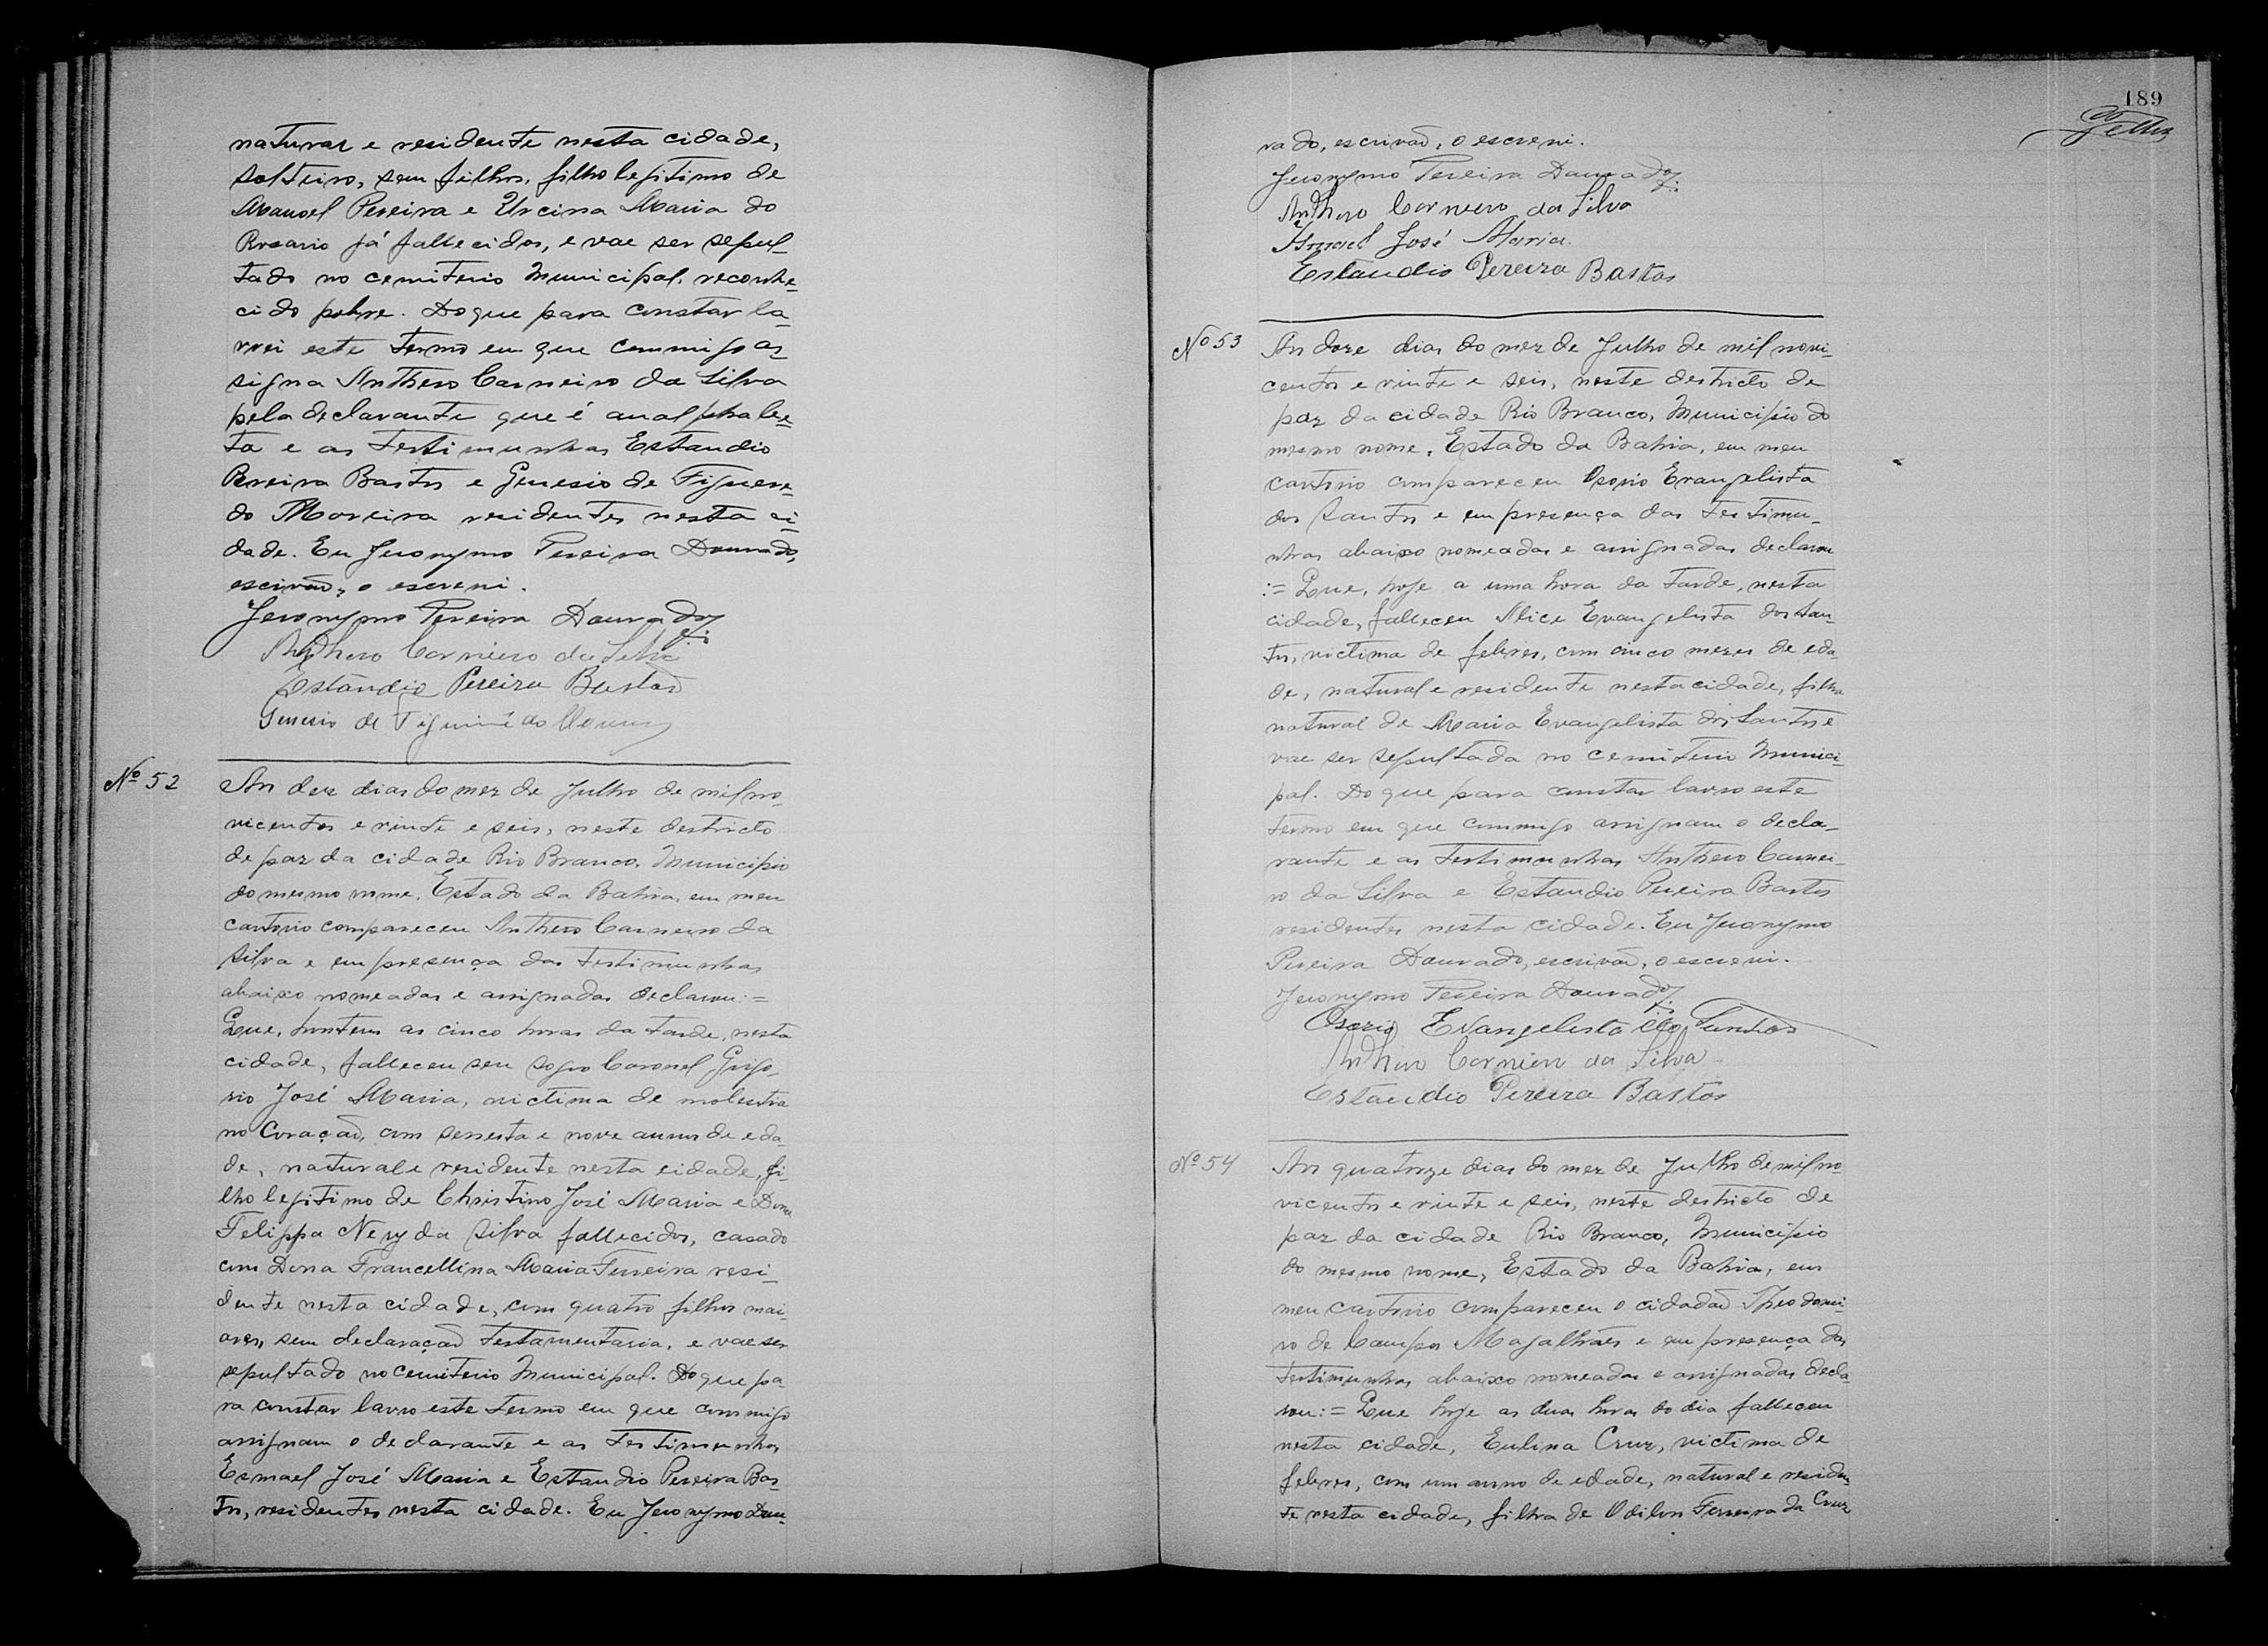 natural e residente nesta cidade,
solteiro, sem filhos, filho legitimo de
Manoel Pereira e Urcina Maria do
Rosario já fallecidos, e vae ser sepul-
tado no cemiterio Municipal, reconhe-
cido pobre. Do que para constar la-
vrei este termo em que commigo as-
signa Anthero Carneiro da Silva
pela declarante que é analphabe-
ta e as testimunhas Estandio
Pereira Bastos e Genesio de Figuere-
do Moreira residentes nesta ci-
dade. Eu Jeronymo Pereira Dourado,
escrivão, o escrevi.
Jeronymo Pereira Dourado
Anthero Carneiro da Silva
Estandio Pereira Bastos
Genesio de Figueirêdo Moreira
Nº 52
Aos dez dias do mez de Julho de mil no-
vicentos e vinte e seis, neste destricto
de paz da cidade Rio Branco, Municipio
do mesmo nome, Estado da Bahia, em meu
cartorio compareceu Anthero Carneiro da
Silva e em presença das testimunhas
abaixo nomeadas e assignadas declarou:=
Que, hontem as cinco horas da tarde, nesta
cidade, falleceu seu sogro Coronel Grigo-
rio José Maria, victima de molestia
no Coração, com sessenta e nove annos de eda-
de, natural e residente nesta cidade, fi-
lho legitimo de Christino José Maria e Dona
Felippa Nery da Silva fallecidos, casado
com Dona Francellina Maria Ferreira resi-
dente nesta cidade, com quatro filhos mai-
ores, sem declaração testamentaria, e vae ser
sepultado no cemiterio Municipal. Do que pa-
ra constar lavro este termo em que commigo
assignam o declarante e as testimunhas
Esmael José Maria e Estandio Pereira Bas-
tos, residentes nesta cidade. Eu Jeronymo Dou-
189
rado, escrivão, o escrevi.
Jeronymo Pereira Dourado
Anthero Carneiro da Silva
Ismael José Maria
Estandio Pereira Bastos
Nº 53
Aos doze dias do mez de Julho de mil novi-
centos e vinte e seis, neste destricto de
paz da cidade Rio Branco, Municipio do
mesmo nome, Estado da Bahia, em meu
cartorio compareceu Osorio Evangelista
dos Santos e em presença das testimu-
nhas abaixo nomeadas e assignadas declarou
:= Que, hoje a uma hora da tarde, nesta
cidade, falleceu Alice Evangelista dos San-
tos, victima de febres, com cinco mezes de eda-
de, natural e residente nesta cidade, filha
natural de Maria Evangelista dos Santos e
vae ser sepultada no cemiterio Munici-
pal. Do que para constar lavro este
termo em que commigo assignam o decla-
rante e as testimunhas Anthero Carnei-
ro da Silva e Estandio Pereira Bastos
residentes nesta cidade. Eu Jeronymo
Pereira Dourado, escrivão, o escrevi.
Jeronymo Pereira Dourado
Osorio Evangelista dos Santos
Anthero Carneiro da Silva
Estandio Pereira Bastos
Nº 54
Aos quatorze dias do mez de Julho de mil no-
vicentos e vinte e seis, neste destricto de
paz da cidade Rio Branco, Municipio
do mesmo nome, Estado da Bahia, em
meu cartorio compareceu o cidadão Theodomi-
ro de Campos Magalhães e em presença das
testimunhas abaixo nomeadas e assignadas decla-
rou:= Que hoje as duas horas do dia falleceu
nesta cidade, Eulina Cruz, victima de
febres, com um anno de edade, natural e residen-
te nesta cidade, filha de Odilon Ferreira da Cruz